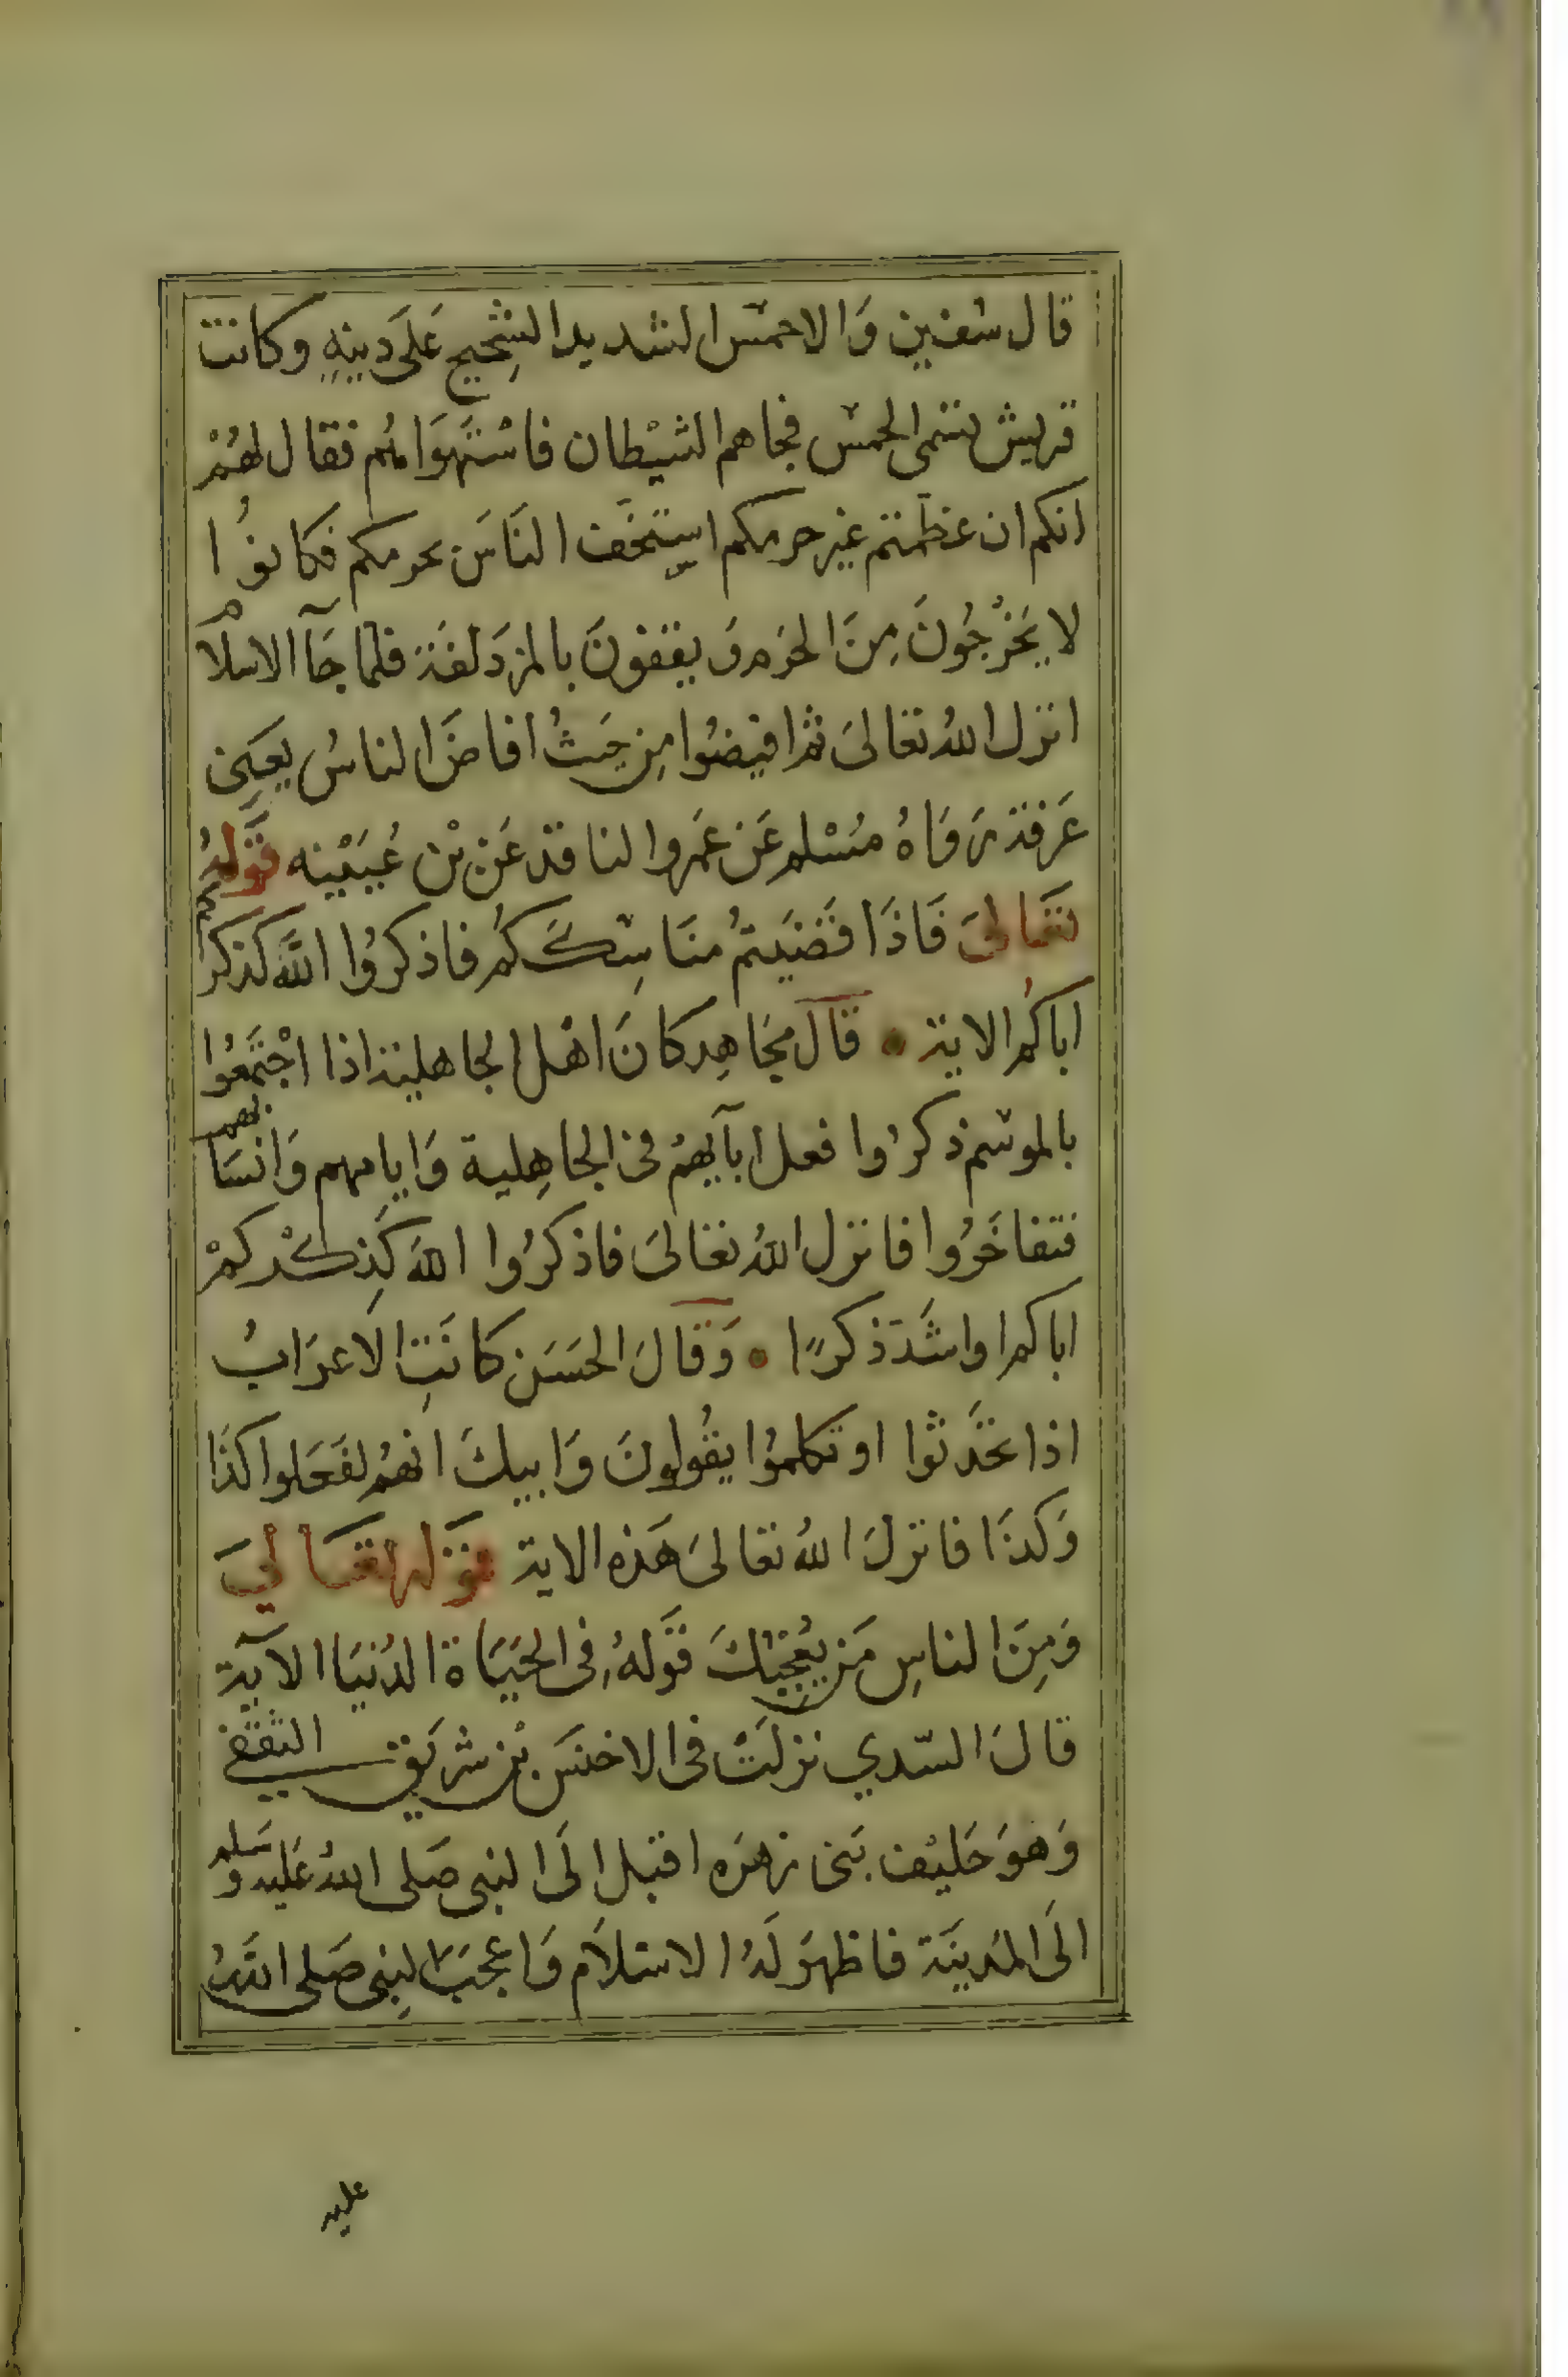 قال سفين وَالاحمس الشديد الشِحيح عَلَى دِينِهِ وكانت
قريش تسمى الحمس فجاهم الشيْطان فاسْتَهوَاهُم فقال لهُمْ
انكم ان عظمتم غير حرمكم استخَف النَاسَ بحرمكم فكانوُا
لا يَخرُجُونَ مِنَ الحَرم وَيقفونَ بالمزدَلفَة فلمّا جَآ الاسلام
انزل اللهُ تعالىَ ثم افيضُوا مِن حَيثُ افاضَ الناسُ يعَنِى
عَرفة رَوَاهُ مسُلم عَن عَمروا لناقد عَن بْن عُيَيْنه قوَلهُ
تعَالىَ فَاذَا قضَيتُم منَاسِكَكُم فاذكرُوا اللَّهَ كذكركم
اباكُم الاية • قالَ مجَاهِد كانَ اهْل الجاهلية اذا اجْتَمعُوا
بالموسم ذكرُوا فعل ابآيهِمُ فى الجاهِلية وَايامِهم وَانسَابهم
فتفاخَرُوا فانزل اللهُ تعالىَ فاذكرُوا اللهَ كذِكْركمْ
اباكم اواشَدّ ذكرًا • وَقالَ الحسَن كانَتِ الاعرَابُ
اذا تحَدثوا او تكلموُا يقُولونَ وَابيكَ انهُم لفَعَلوا كذَا
وَكذَا فانزلَ اللهُ تعالىَ هَذه الاية قوَله تعَالىَ
وَمِنَ الناسِ مَن يعُجبُكَ قوَلهُ فِى الحيَاة الدُنيَا الآية
قالَ السّدي نزلَتْ فى الاخنسَ بْن شريَق الثقفى
وَهوَ حَليْف بَنى زهرَه اقبل الَى النبى صَلى اللهُ عَليه وسَلم
الَى المدَينَة فاظهرَ لَهُ الاسلاَم وَاعجبَ النبِى صَلى اللَّهُ
عليه